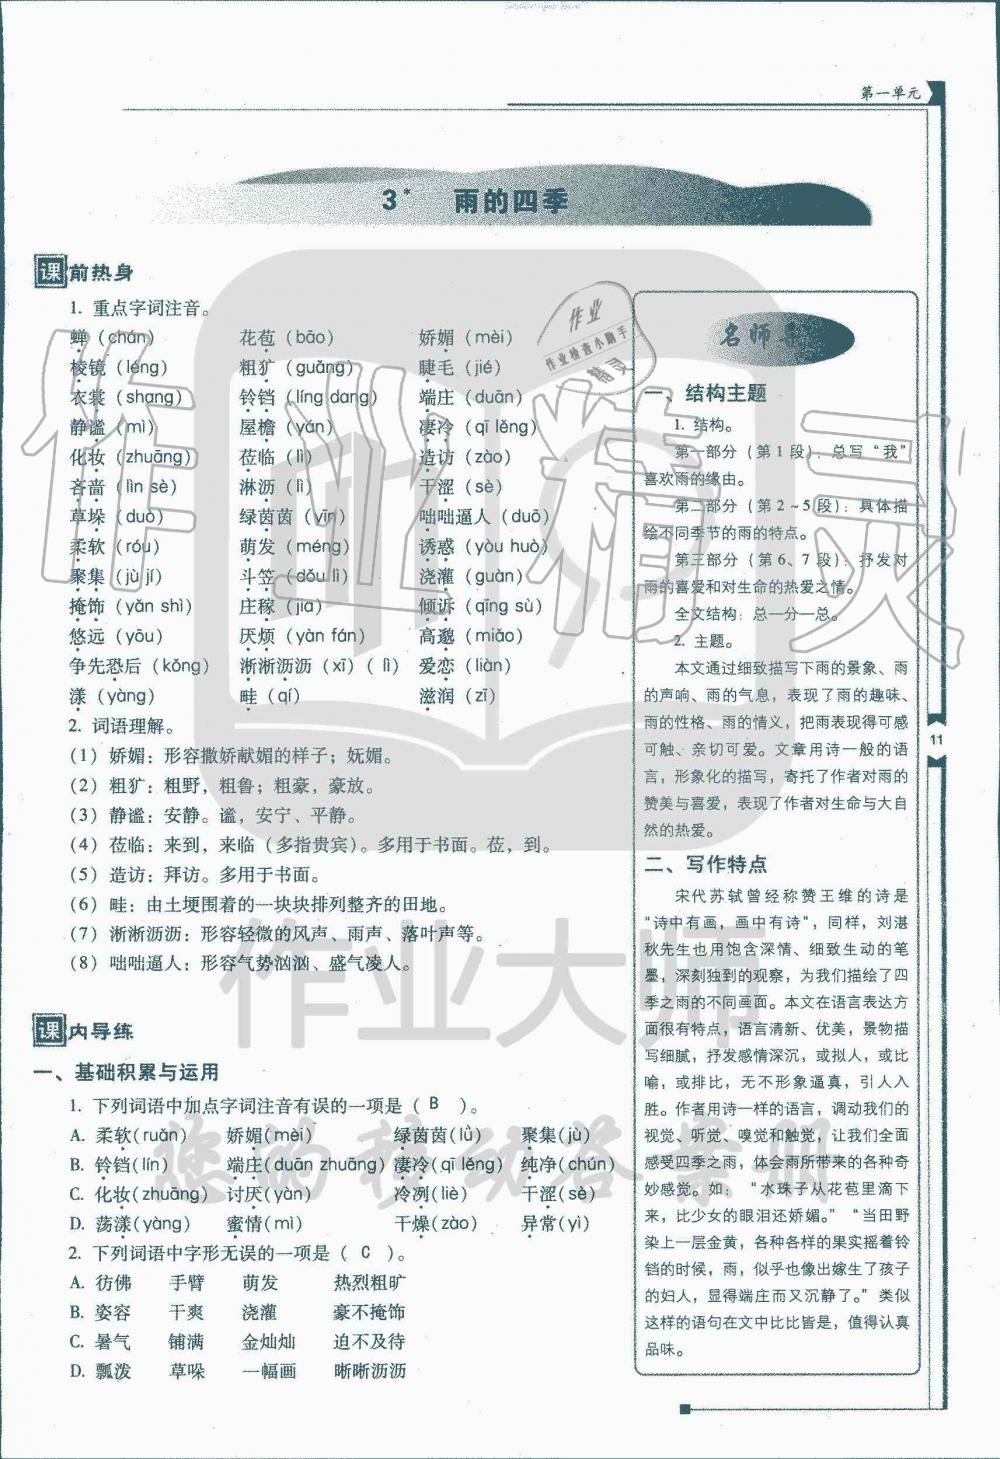 第一单元
3* 雨的四季
课前热身
1. 重点字词注音。
蝉(chán) 花苞(bāo) 娇媚(mèi)
棱镜(léng) 粗犷(guǎng) 睫毛(jié)
衣裳(shang) 铃铛(líng dang) 端庄(duān)
静谧(mì) 屋檐(yán) 凄冷(qī lěng)
化妆(zhuāng) 莅临(lì) 造访(zào)
吝啬(lìn sè) 淋沥(lì) 干涩(sè)
草垛(duò) 绿茵茵(yīn) 咄咄逼人(duō)
柔软(róu) 萌发(méng) 诱惑(yòu huò)
聚集(jù jí) 斗笠(dǒu lì) 浇灌(guàn)
掩饰(yǎn shì) 庄稼(jia) 倾诉(qīng sù)
悠远(yōu) 厌烦(yàn fán) 高邈(miǎo)
争先恐后(kǒng) 淅淅沥沥(xī)(lì) 爱恋(liàn)
漾(yàng) 畦(qí) 滋润(zī)
2. 词语理解。
(1) 娇媚：形容撒娇献媚的样子；妩媚。
(2) 粗犷：粗野，粗鲁；粗豪，豪放。
(3) 静谧：安静。谧，安宁、平静。
(4) 莅临：来到，来临(多指贵宾)。多用于书面。莅，到。
(5) 造访：拜访。多用于书面。
(6) 畦：由土埂围着的一块块排列整齐的田地。
(7) 淅淅沥沥：形容轻微的风声、雨声、落叶声等。
(8) 咄咄逼人：形容气势汹汹、盛气凌人。
课内导练
一、基础积累与运用
1. 下列词语中加点字词注音有误的一项是( B )。
A. 柔软(ruǎn) 娇媚(mèi) 绿茵茵(lǜ) 聚集(jù)
B. 铃铛(lín) 端庄(duān zhuāng) 凄冷(qī léng) 纯净(chún)
C. 化妆(zhuāng) 讨厌(yàn) 冷冽(liè) 干涩(sè)
D. 荡漾(yàng) 蜜情(mì) 干燥(zào) 异常(yì)
2. 下列词语中字形无误的一项是( C )。
A. 彷佛 手臂 萌发 热烈粗旷
B. 姿容 干爽 浇灌 豪不掩饰
C. 暑气 铺满 金灿灿 迫不及待
D. 瓢泼 草哚 一幅画 晰晰沥沥
名师导
一、结构主题
1. 结构。
第一部分(第1段)：总写“我”
喜欢雨的缘由。
第二部分(第2~5段)：具体描
绘不同季节的雨的特点。
第三部分(第6、7段)：抒发对
雨的喜爱和对生命的热爱之情。
全文结构：总—分—总。
2. 主题。
本文通过细致描写下雨的景象、雨
的声响、雨的气息，表现了雨的趣味、
雨的性格、雨的情义，把雨表现得可感
可触、亲切可爱。文章用诗一般的语
言，形象化的描写，寄托了作者对雨的
赞美与喜爱，表现了作者对生命与大自
然的热爱。
二、写作特点
宋代苏轼曾经称赞王维的诗是
“诗中有画，画中有诗”，同样，刘湛
秋先生也用饱含深情、细致生动的笔
墨，深刻独到的观察，为我们描绘了四
季之雨的不同画面。本文在语言表达方
面很有特点，语言清新、优美，景物描
写细腻，抒发感情深沉，或拟人，或比
喻，或排比，无不形象逼真，引人入
胜。作者用诗一样的语言，调动我们的
视觉、听觉、嗅觉和触觉，让我们全面
感受四季之雨，体会雨所带来的各种奇
妙感觉。如：“水珠子从花苞里滴下
来，比少女的眼泪还娇媚。”“当田野
染上一层金黄，各种各样的果实摇着铃
铛的时候，雨，似乎也像出嫁生了孩子
的妇人，显得端庄而又沉静了。”类似
这样的语句在文中比比皆是，值得认真
品味。
11
作业
作业检查小助手
精灵
作业精灵
作业大师
您的移动答案机